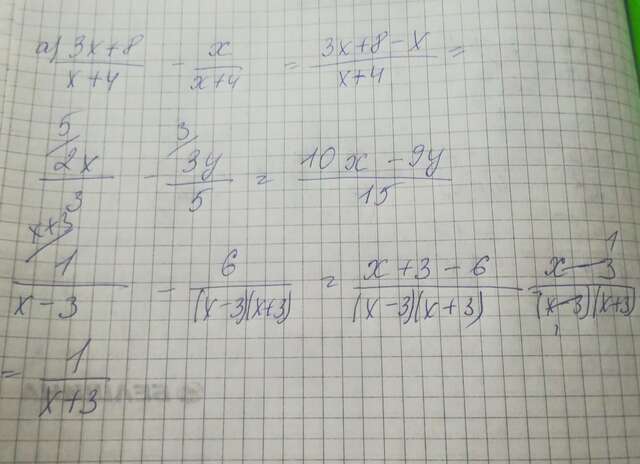 а) 3x+8/x+4 - x/x+4 = 3x+8-x/x+4 =
5/ 2x/3 - 3/ 3y/5 = 10x-9y/15
x+3/ 1/x-3 - 6/(x-3)(x+3) = x+3-6/(x-3)(x+3) x-3/(x-3)(x+3) 1 1
= 1/x+3